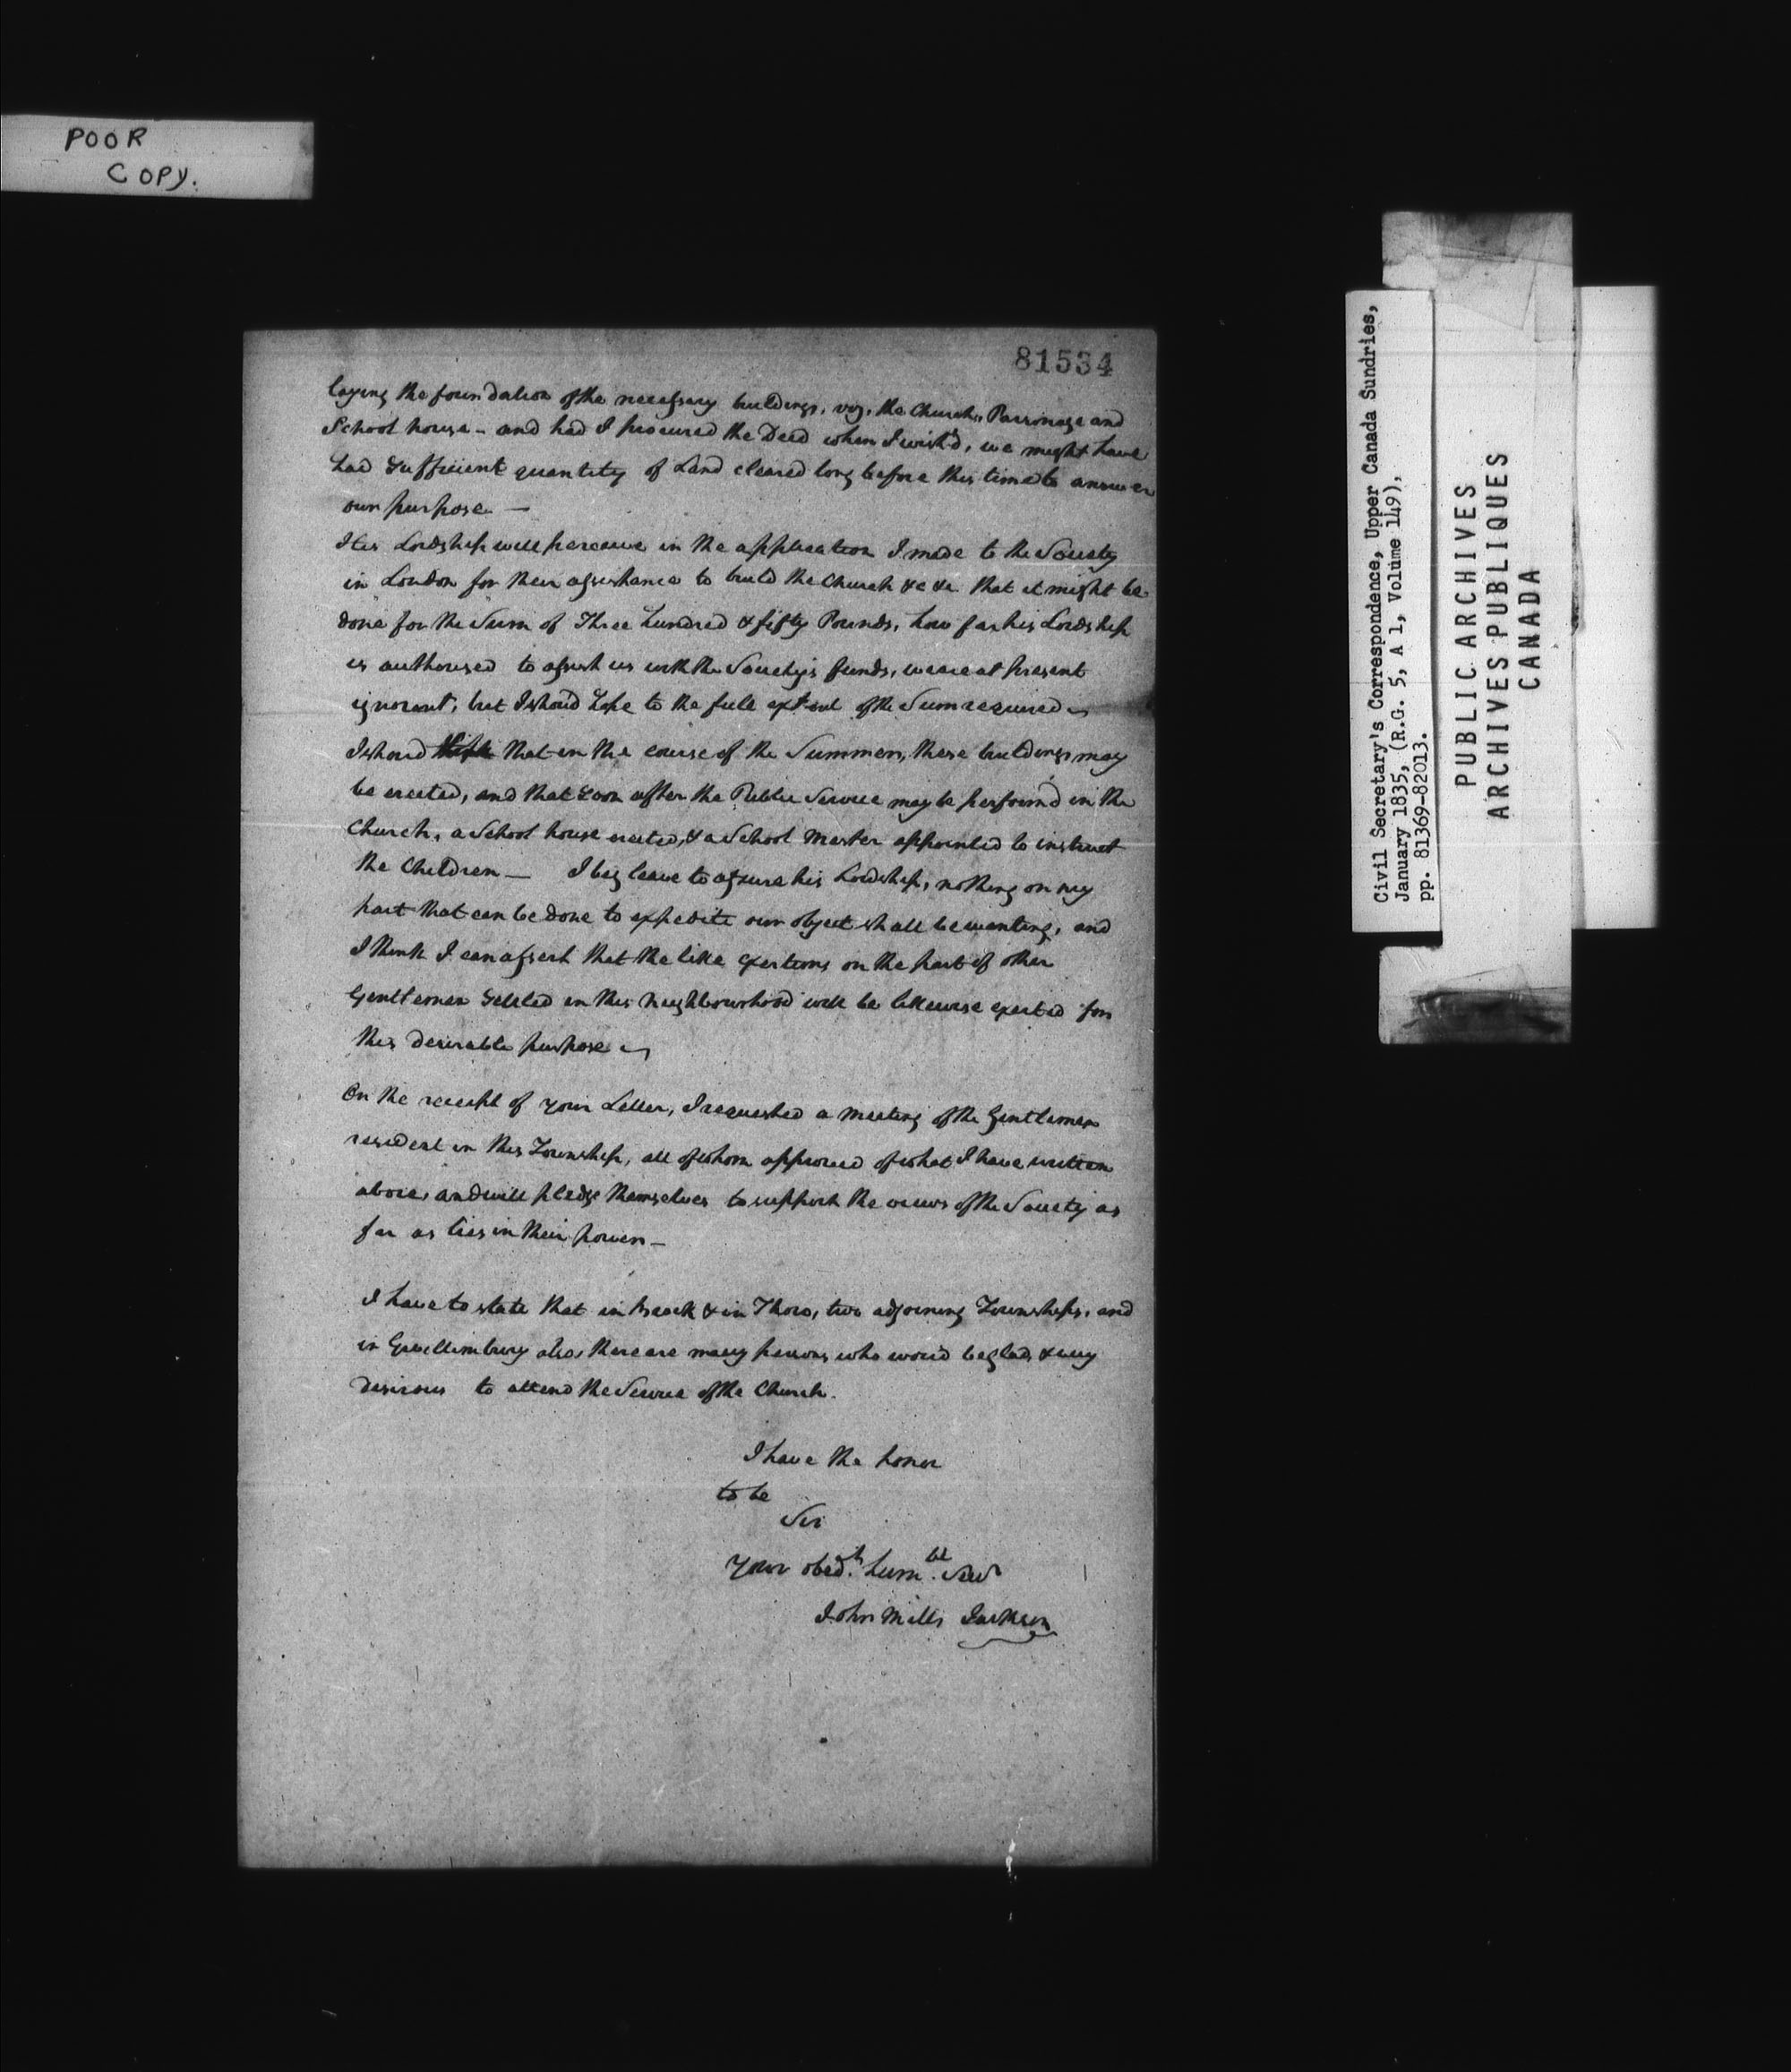 POOR
COPY.
81534
laying the foundation of the necessary buildings, viz. the Church, Parsonage and
School house - and had I procured the Deed when I wish'd, we might have
had sufficient quantity of Land cleared long before this time to answer
our purpose —
His Lordship will perceive in the application I made to the Society
in London for their assistance to build the Church &c &c that it might be
done for the Sum of Three hundred & fifty Pounds, how far his Lordship
is authorised to assist us with the Society's funds, we are at present
ignorant, but I shoud hope to the full extent of the Sum required
I shoud think that in the course of the Summer, these buildings may
be erected, and that soon after the Public Service may be perform'd in the
Church, a School house erected, & a School Master appointed to instruct
the Children — I beg leave to assure his Lordship, nothing on my
part that can be done to expedite our object shall be wanting, and
I think I can assert that the like exertions on the part of other
Gentlemen settled in this neighbourhood will be likewise exerted for
this desirable purpose
On the receipt of your Letter, I requested a meeting of the Gentlemen
resident in this Township, all of whom approved of what I have written
above, and will pledge themselves to support the views of the Society as
far as lies in their power —
I have to state that in Brock & in Thora, two adjoining Townships, and
in Gwillimbury also, there are many persons who woud be glad & very
desirous to attend the Service of the Church.
I have the honor
to be
Sir
Your obedt. humble. Servt
John Mills Jackson
Civil Secretary's Correspondence, Upper Canada Sundries,
January 1835, (R.G. 5, A 1, Volume 149),
pp. 81369-82013.
PUBLIC ARCHIVES
ARCHIVES PUBLIQUES
CANADA